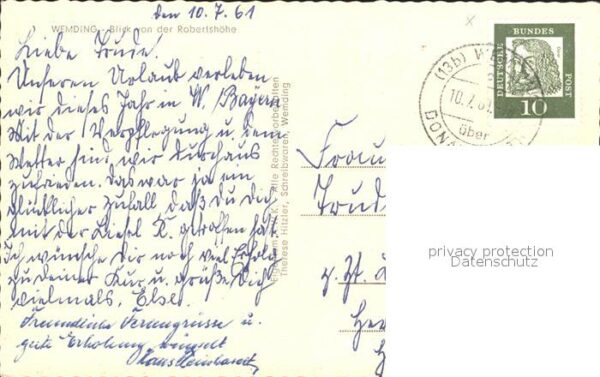 den 10.7.61
WEMDING - Blick von der Robertshöhe
Liebe Trude!
Unseren Urlaub verleben
wir dieses Jahr in W./Bayern
Mit der Verpflegung u. dem
Wetter sind wir durchaus
zufrieden. Das war ja ein
glücklicher Zufall daß du Dich
mit der Liesel K. getroffen hast.
Ich wünsche Dir noch viel Erfolg
zu deiner Kur u. grüße Dich
vielmals, Else.
Freundliche Feriengrüsse u.
gute Erholung wünscht
Alle Rechte vorbehalten
Therese Hitzler, Schreibwaren, Wemding
DEUTSCHE BUNDES POST
10
(13b)
10.7.61
über
DONA
Frau
Trud
z. Zt.
privacy protection
Datenschutz